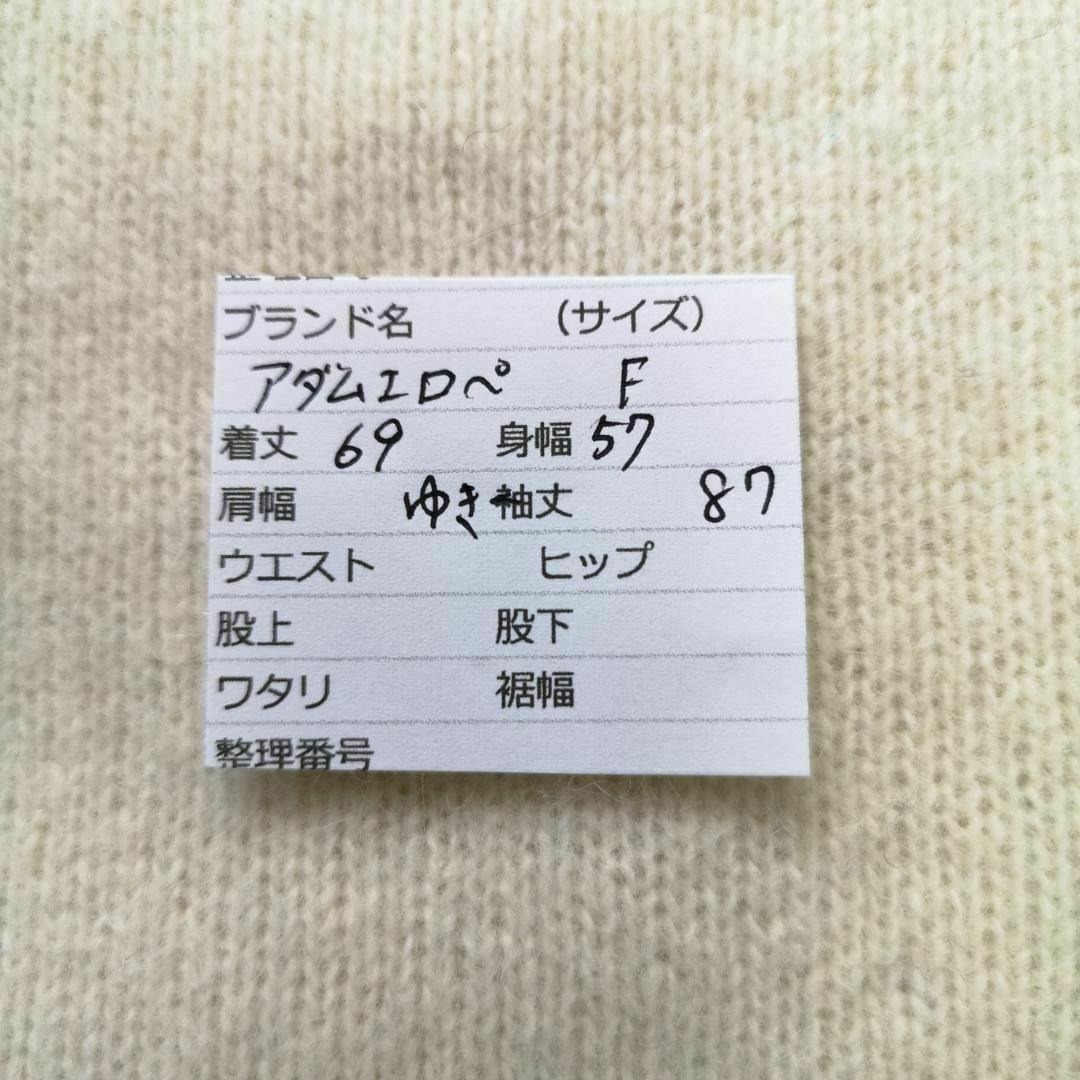 ブランド名 (サイズ)
アダムエロペ F
着丈 69 身幅 57
肩幅 ゆき袖丈 87
ウエスト ヒップ
股上 股下
ワタリ 裾幅
整理番号